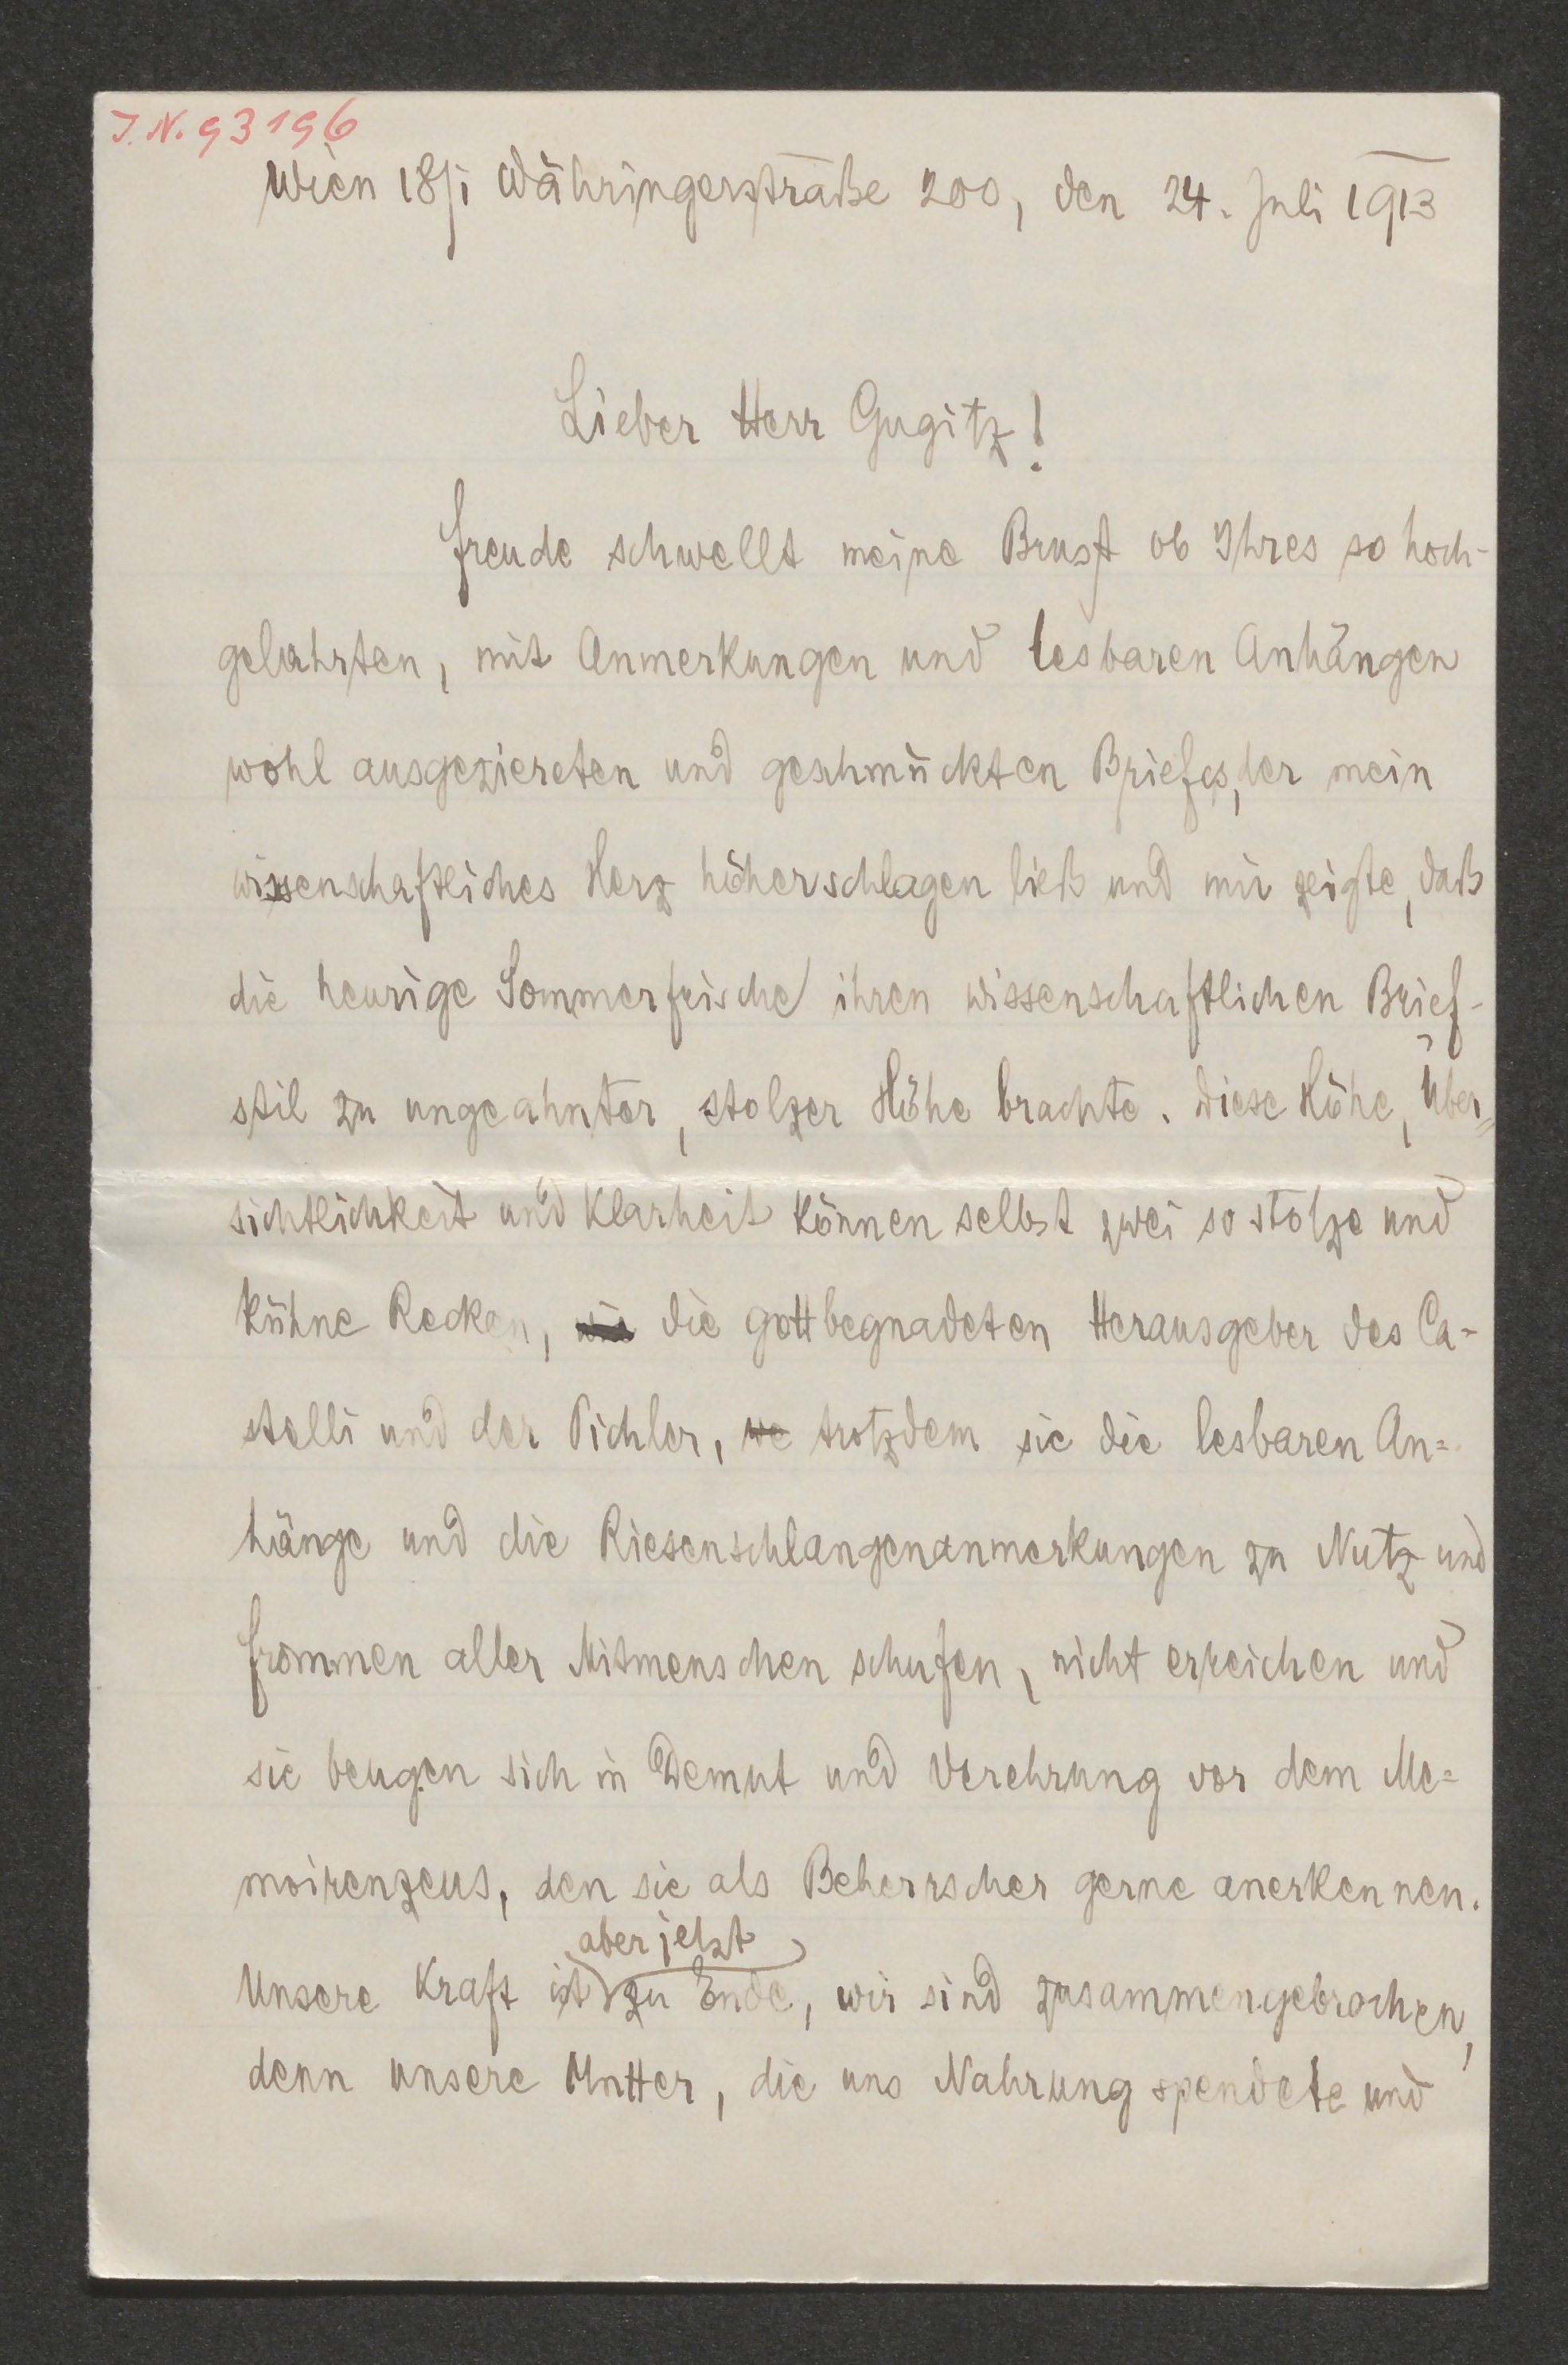 J. N. 93196
Wien 18/1 Währingerstraße 200, den 24. Juli 1913
Lieber Herr Gugitz!
Freude schwellt meine Brust ob Ihres so hoch-
gelahrten, mit Anmerkungen und lesbaren Anhängen
wohl ausgeziereten und geschmückten Briefes, der mein
wissenschaftliches Herz höherschlagen ließ und mir zeigte, daß
die heurige Sommerfrische ihren wissenschaftlichen Brief-
stil zu ungeahnter, stolzer Höhe brachte. Diese Höhe, Über=
sichtlichkeit und Klarheit können selbst zwei so stolze und
kühne Recken, die gottbegnadeten Herausgeber des Ca-
stelli und der Pichler, we trotzdem sie die lesbaren An=
hänge und die Riesenschlangenanmerkungen zu Nutz und
Frommen aller Mitmenschen schufen, nicht erreichen und
sie beugen sich in Demut und Verehrung vor dem Me=
moirenzeus, den sie als Beherrscher gerne anerkennen.
aber jetzt
Unsere Kraft ist zu Ende, wir sind zusammengebrochen,
denn unsere Mutter, die uns Nahrung spendete und